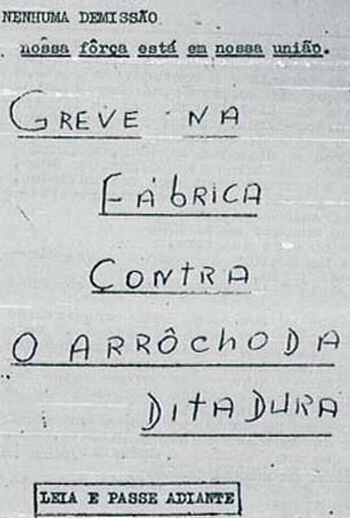 NENHUMA DEMISSÃO
nossa fôrça está em nossa união.
GREVE NA
FÁBRICA
CONTRA
O ARRÔCHO DA
DITADURA
LEIA E PASSE ADIANTE